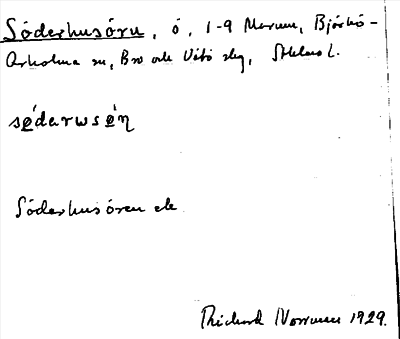 Söderhusöra, ö, 1-9 Marum, Björkö-
Arholma sn, Bro och Vätö slg, Sthlms l.
sǿdarwsǿn
Söderhusören ek
Richard Norrman 1929.